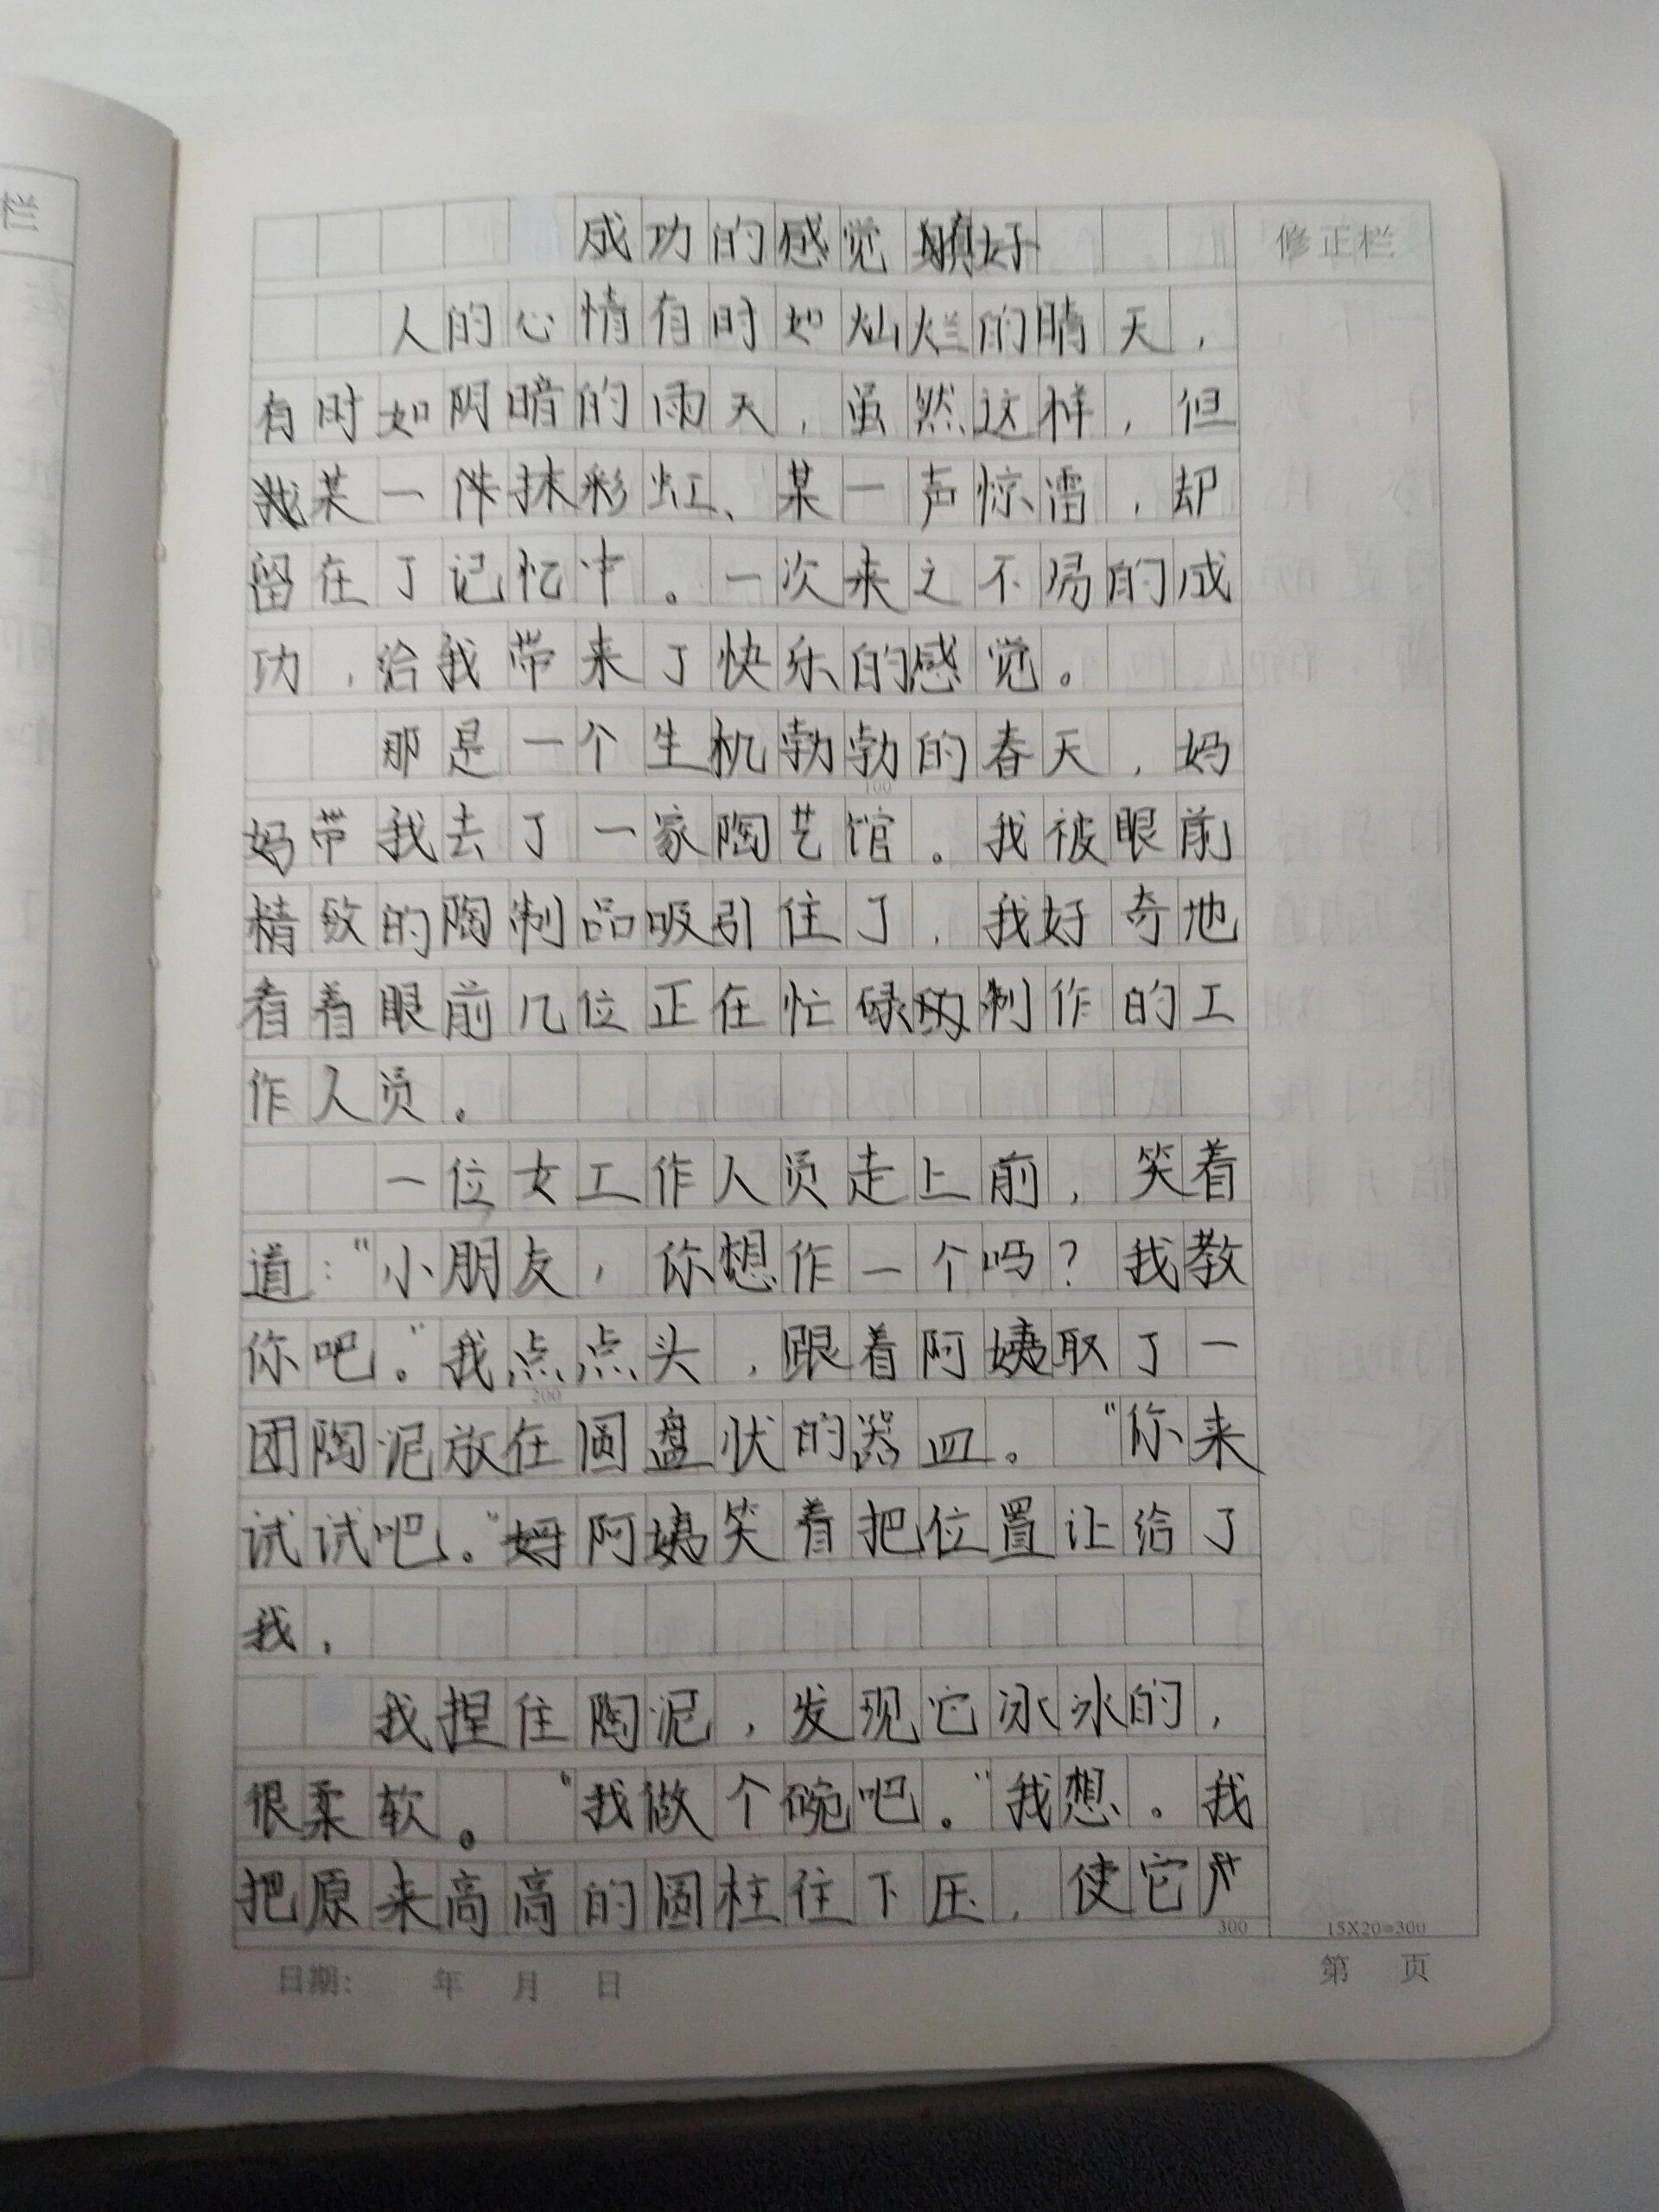 栏
成功的感觉真好
修正栏
人的心情有时如灿烂的晴天，
有时如阴暗的雨天，虽然这样，但
某一抹彩虹、某一声惊雷，却
留在了记忆中。一次来之不易的成
功，给我带来了快乐的感觉。
那是一个生机勃勃的春天，妈
100
妈带我去了一家陶艺馆。我被眼前
精致的陶制品吸引住了，我好奇地
看着眼前几位正在忙碌制作的工
作人员。
一位女工作人员走上前，笑着
道："小朋友，你想作一个吗？我教
你吧。"我点点头，跟着阿姨取了一
200
团陶泥放在圆盘状的器皿。"你来
试试吧。"阿姨笑着把位置让给了
我，
我捏住陶泥，发现它冰冰的，
很柔软。"我做个碗吧。"我想。我
把原来高高的圆柱往下压，使它
300
15X20=300
日期： 年 月 日
第 页